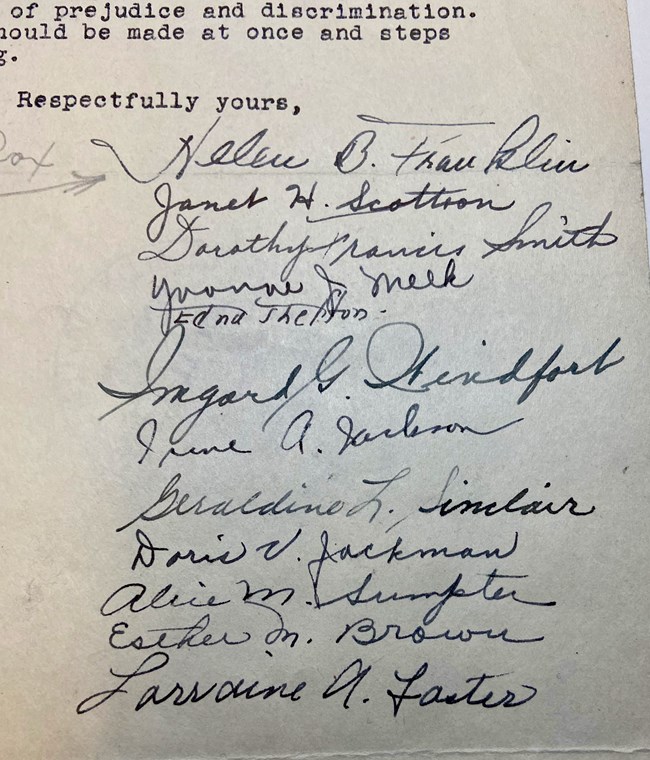 of prejudice and discrimination.
hould be made at once and steps
g.
Respectfully yours,
Helen B. Franklin
Janet H. Scottron
Dorothy Francis Smith
Yvonne J. Meek
Edna Shelton.
Imgard G. Windfort
Irene A. Jackson
Geraldine L. Sinclair
Doris V. Jackman
Alice M. Sumpter
Esther M. Brown
Lorraine A. Foster